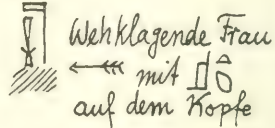 Wehklagende Frau
mit
auf dem Kopfe